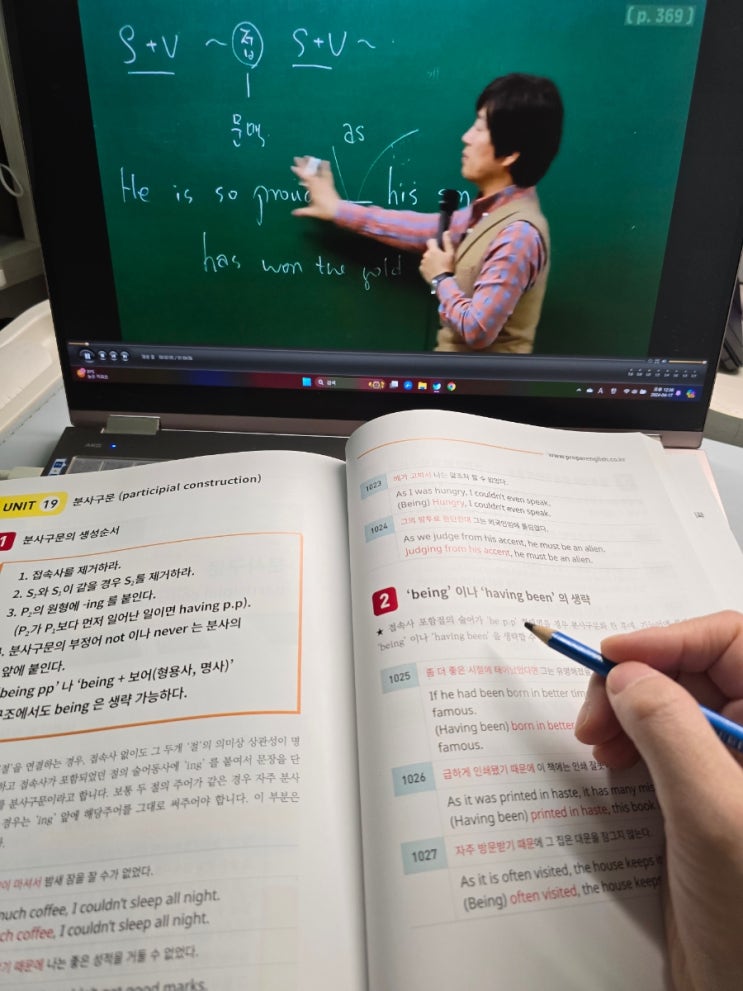 [p. 369]
S + V ~ 접 S + V ~
문맥
as
He is so prou his
has won the gold
UNIT 19 분사구문 (participial construction)
1 분사구문의 생성순서
1. 접속사를 제거하라.
2. S₂와 S₁이 같을 경우 S₂를 제거하라.
3. P₂의 원형에 -ing 를 붙인다.
(P₂가 P₁보다 먼저 일어난 일이면 having p.p).
. 분사구문의 부정어 not 이나 never 는 분사의
앞에 붙인다.
being pp' 나 'being + 보어(형용사, 명사)'
구조에서도 being 은 생략 가능하다.
절'을 연결하는 경우, 접속사 없이도 그 두개 '절'의 의미상 상관성이 명
하고 접속사가 포함되었던 절의 술어동사에 'ing' 를 붙여서 문장을 단
를 분사구문이라고 합니다. 보통 두 절의 주어가 같은 경우 자주 분사
경우는 'ing' 앞에 해당주어를 그대로 써주어야 합니다. 이 부분은
이 마셔서 밤새 잠을 잘 수가 없었다.
much coffee, I couldn't sleep all night.
ch coffee, I couldn't sleep all night.
기 때문에 나는 좋은 성적을 거둘 수 없었다.
good marks.
www.properenglish.co.kr
1023 배가 고파서 나는 말조차 할 수 없었다.
As I was hungry, I couldn't even speak.
(Being) Hungry, I couldn't even speak.
1024 그의 말투로 판단컨대 그는 외국인임에 틀림없다.
As we judge from his accent, he must be an alien.
Judging from his accent, he must be an alien.
2 'being' 이나 'having been' 의 생략
★ 접속사 포함절의 술어가 'be p.p'
'being' 이나 'having been' 을 생략할 수
1025 좀 더 좋은 시절에 태어났었다면 그는 유명해졌을
If he had been born in better tim
famous.
(Having been) born in better
famous.
1026 급하게 인쇄됐기 때문에 이 책에는 인쇄
As it was printed in haste, it has many mis
(Having been) printed in haste, this book
1027 자주 방문받기 때문에 그 집은 대문을 잠그지 않는다.
As it is often visited, the house keeps
(Being) often visited, the house keeps